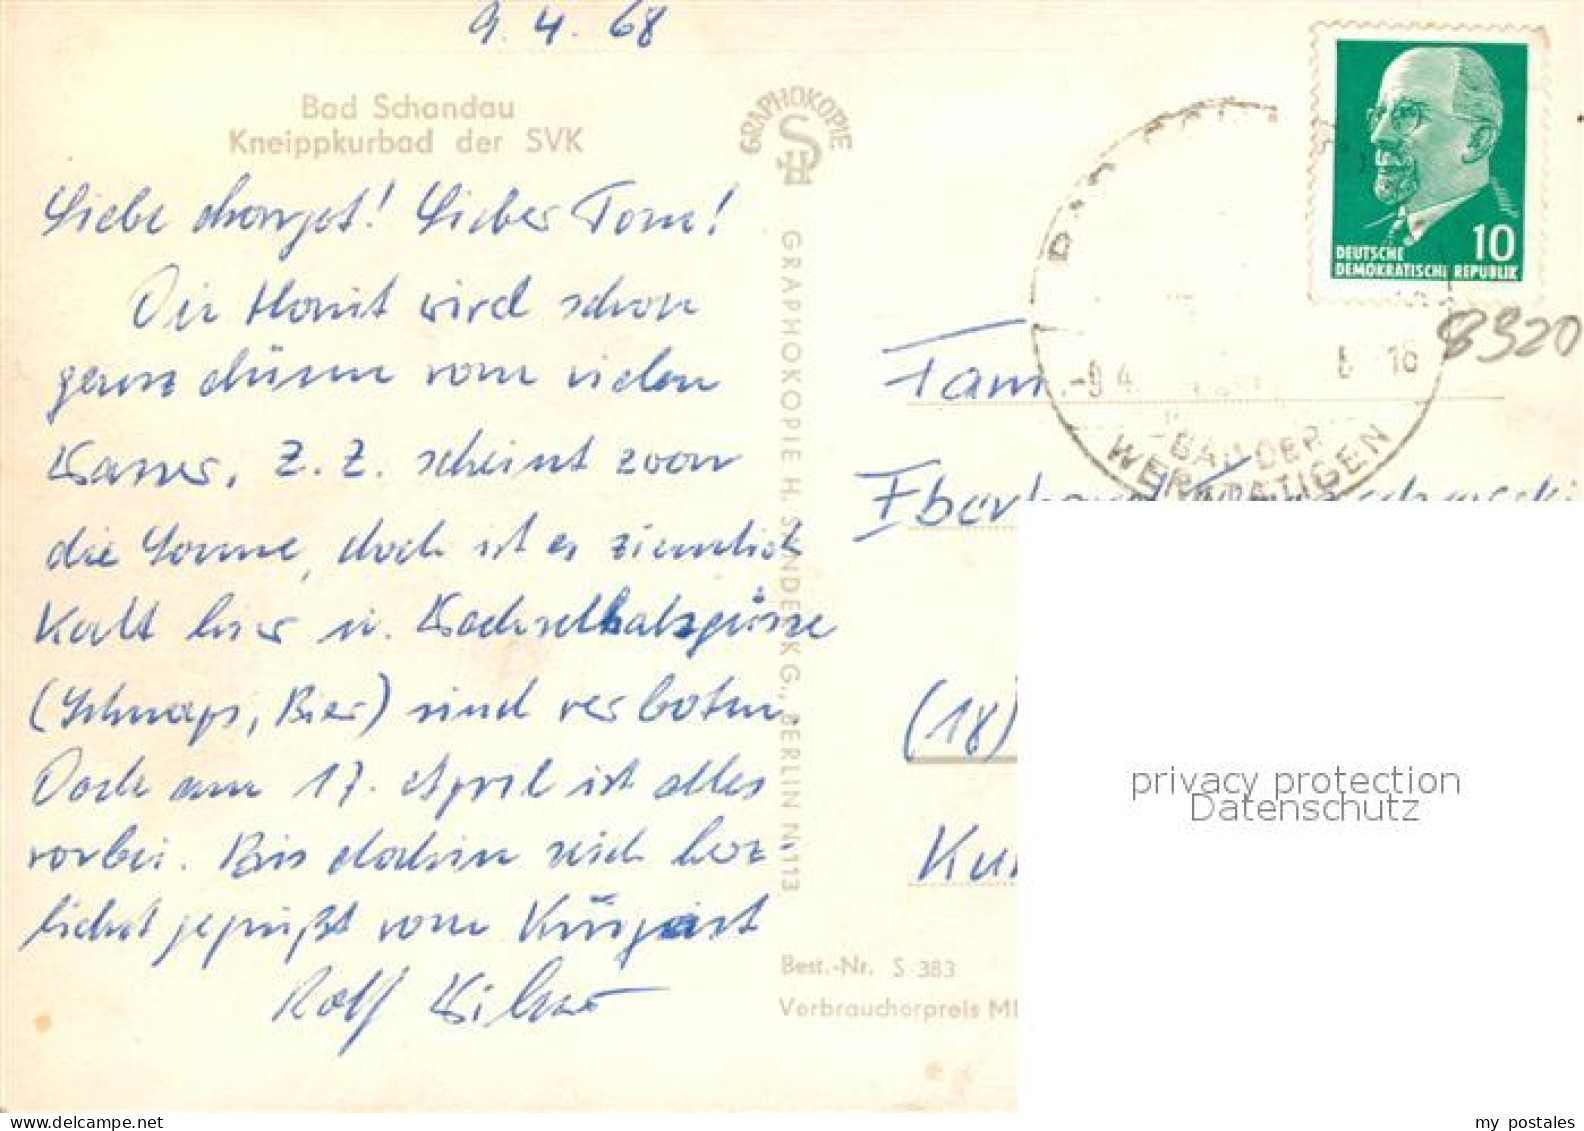 9. 4. 68
Bad Schandau
Kneippkurbad der SVK
GRAPHOKOPIE
HS
Liebe Margot! Lieber Tom!
Die Haut wird schon
ganz dünn vom vielen
Wasser, z. Z. scheint zwar
die Sonne, doch ist es ziemlich
Kalt hier u. Wechselhalsgüsse
(Schnaps, Bier) sind verboten.
Doch am 17. April ist alles
vorbei. Bis dahin seid herz-
lichst gegrüßt vom Kurgast
Rolf
GRAPHOKOPIE H. SANDER KG., BERLIN N 113
Best.-Nr. S 383
Verbraucherpreis M
DEUTSCHE
DEMOKRATISCHE REPUBLIK
10
-9 4.
16
BAD DER
WERKTÄTIGEN
8920
Fam
Eberhard
(18)
Ku
privacy protection
Datenschutz
my postales